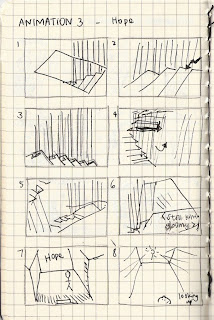 ANIMATION 3 - Hope
1
2
3
4
5
6
7
Hope
8
looking
up